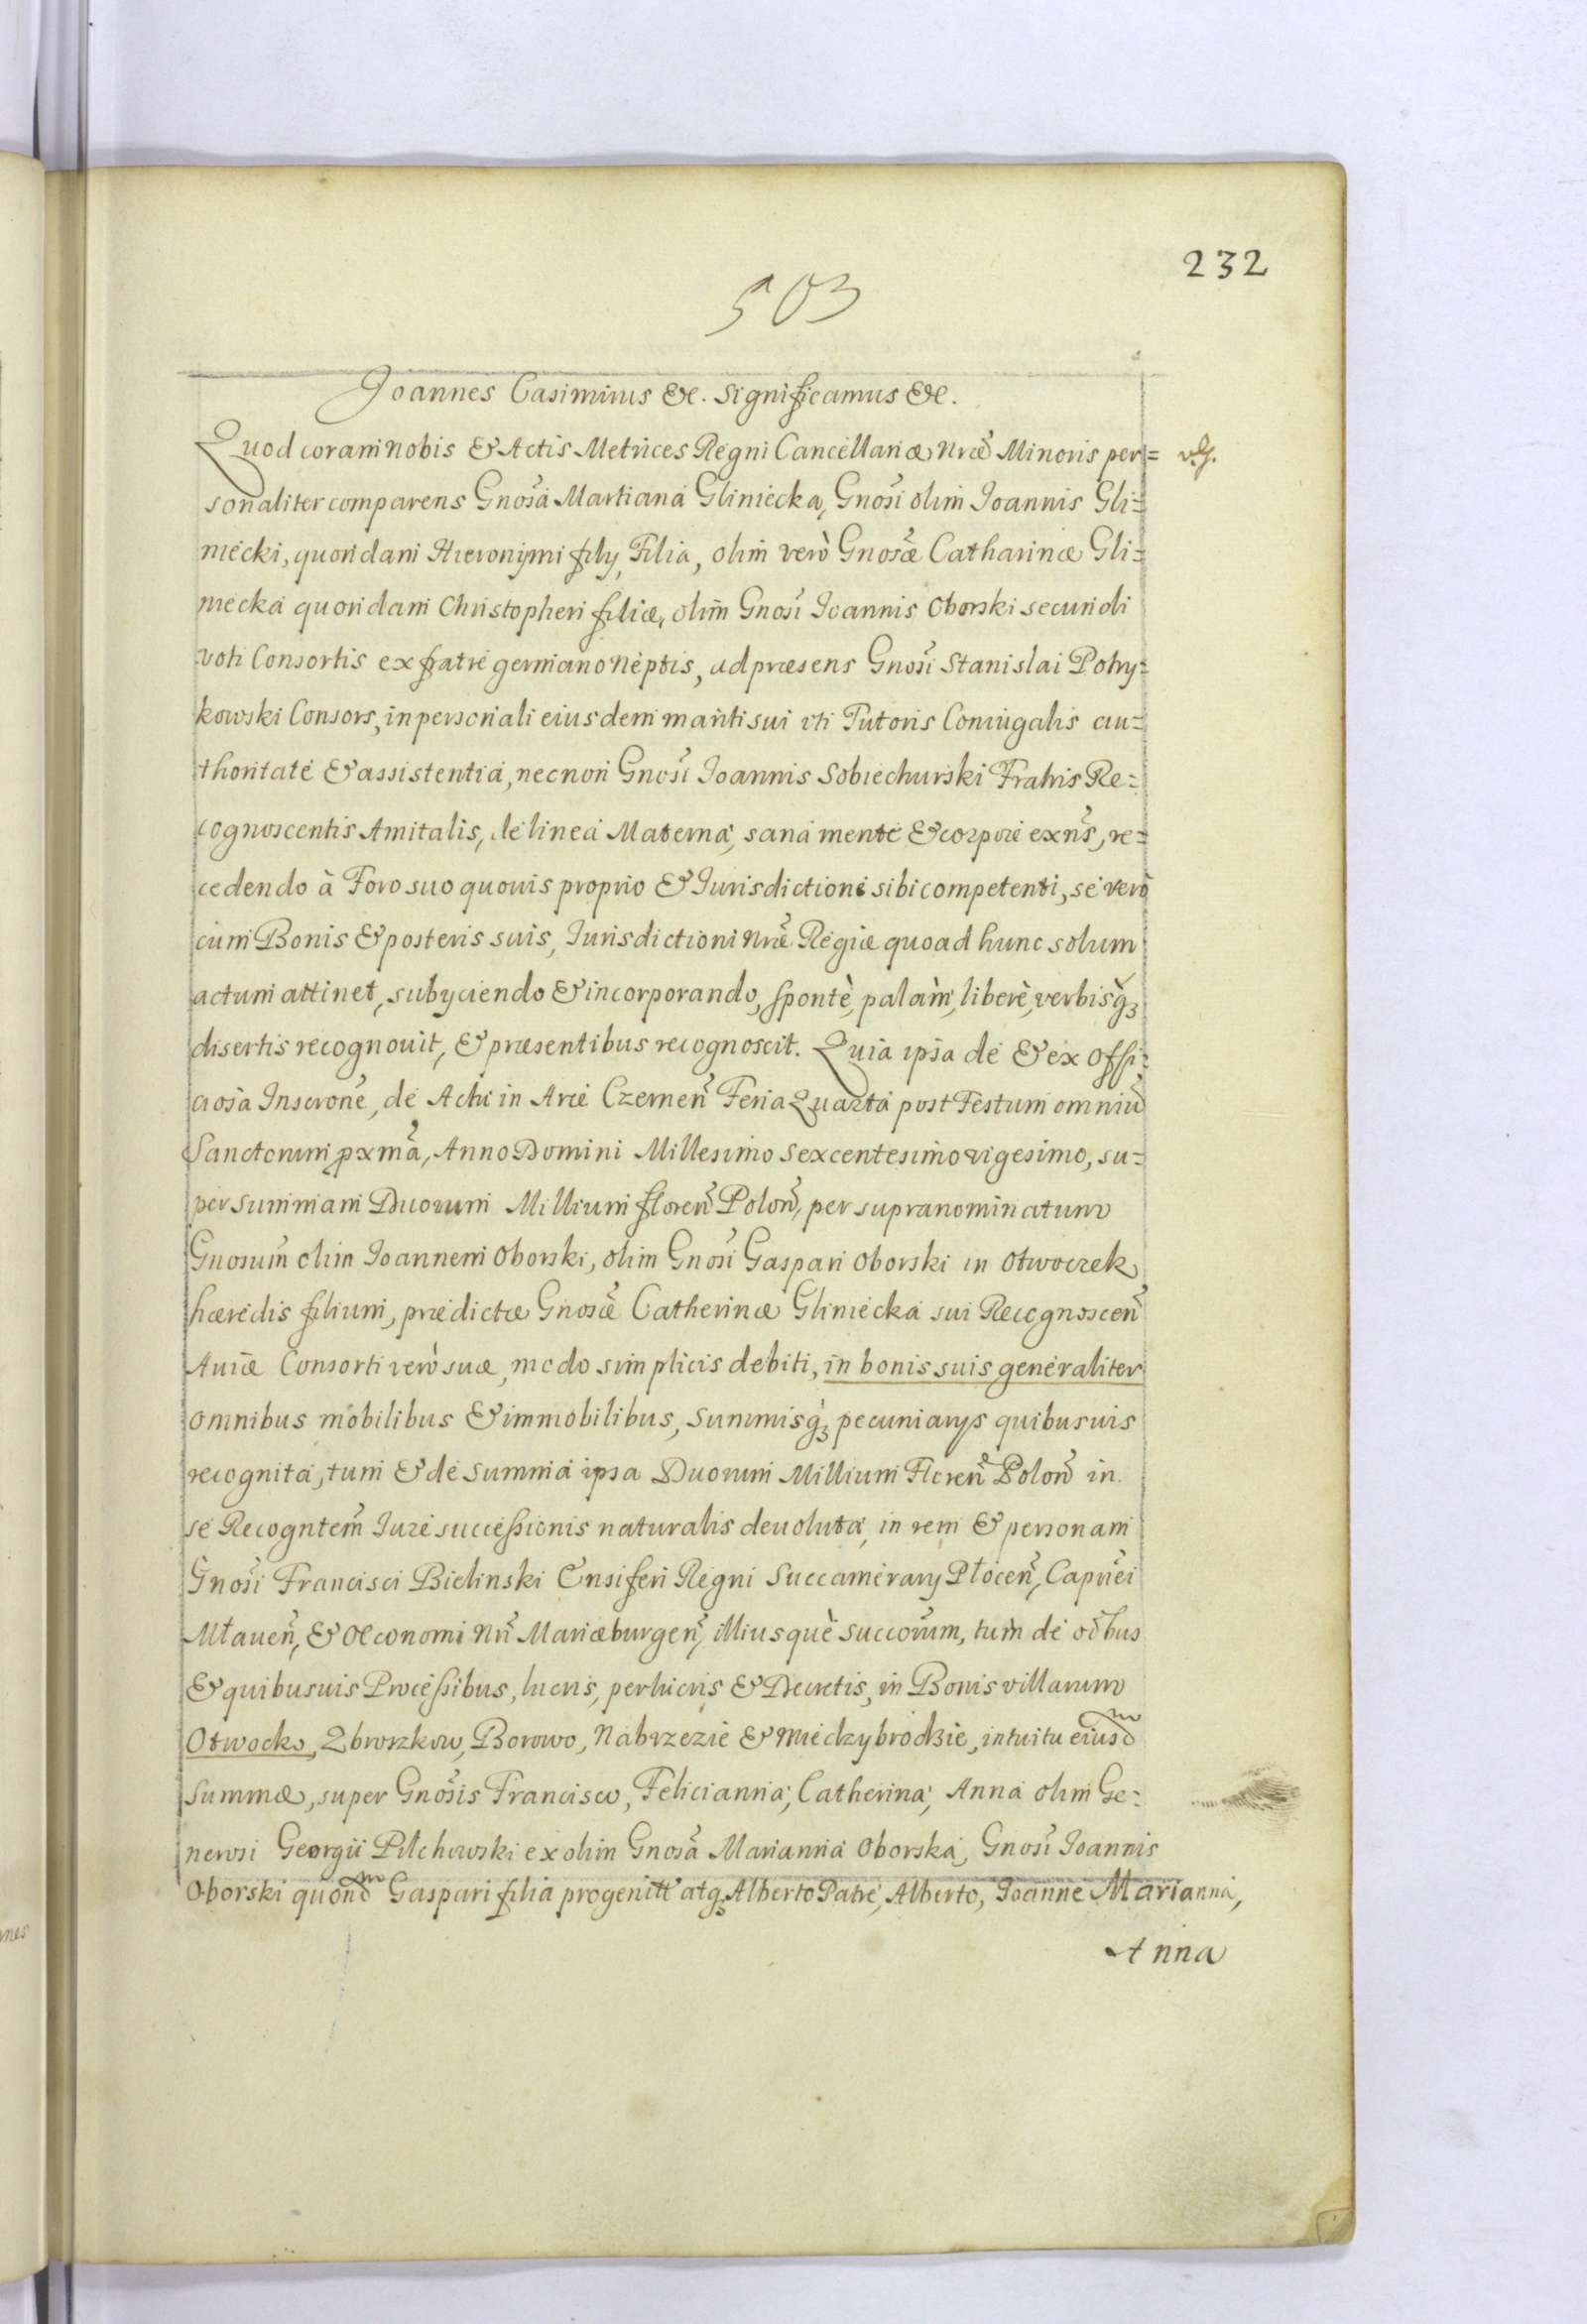 232
503
Joannes Casimirus &c. Significamus &c.
Quod coram nobis & Actis Metrices Regni Cancellariæ nr̃æ Minoris per=
sonaliter comparens Gnosa Martiana Gliniecka, Gnosi olim Joannis Gli=
niecki, quondam Hieronymi filÿ, Filia, olim verò Gnosæ Catharinæ Gli=
niecka quondam Christopheri filiæ, olim Gnosi Joannis Oborski secundi
voti Consortis ex fratre germano neptis, ad præsens Gnosi Stanislai Potry=
kowski Consors, in personali eiusdem mariti sui vti Tutoris Coniugalis au=
thoritate & assistentia, necnon Gnosi Joannis Sobiechurski Fratris Re=
cognoscentis Amitalis, de linea Materna, sana mente & corpore exñs, re=
cedendo à Foro suo quouis proprio & Jurisdictione sibi competenti, se verò
cum Bonis & posteris suis, Jurisdictioni nr̃æ Regiæ quoad hunc solum
actum attinet, subÿciendo & incorporando, spontè, palàm, liberè, verbisq̃;
disertis recognouit, & præsentibus recognoscit. Quia ipsa de & ex offi=
ciosa Inscrone, de Actu in Arce Czernen̄ Feria Quarta post Festum omniũ
Sanctorum pxmã, Anno Domini Millesimo Sexcentesimo vigesimo, su=
per summam Duorum Millium floren̄ Polon̄, per supranominatum
Gnosum olim Joannem Oborski, olim Gnosi Gaspari Oborski in Otwoczek
hæredis filium, prædictæ Gnosæ Catherinæ Gliniecka sui Recognoscen̄
Auiæ Consorti verò suæ, modo simplicis debiti, in bonis suis generaliter
omnibus mobilibus & immobilibus, summisq̃; pecuniarÿs quibusuis
recognita, tum & de summa ipsa Duorum Millium Floren̄ Polon̄ in
se Recogntem̄ Jure successionis naturalis deuoluta, in rem & personam
Gnosi Francisci Bielinski Ensiferi Regni Succamerarÿ Płocen̄, Capnei
Mławen̄, & Oeconomi nr̃i Mariæburgen̄, illiusquè succorum, tum de oĩbus
& quibusuis Processibus, lucris, perlucris & Decretis, in Bonis villarum
Otwocko, Zbroszkow, Borowo, Nabrzezie & Miedzybrodzie, intuitu eiusd̃m
Summæ, super Gnosis Francisco, Felicianna, Catherina, Anna olim Ge=
nerosi Georgii Pilchowski ex olim Gnosa Marianna Oborska, Gnosi Joannis
Oborski quond̃m Gaspari filia progenitt̃ atq; Alberto Patre, Alberto, Joanne Marianna,
Anna